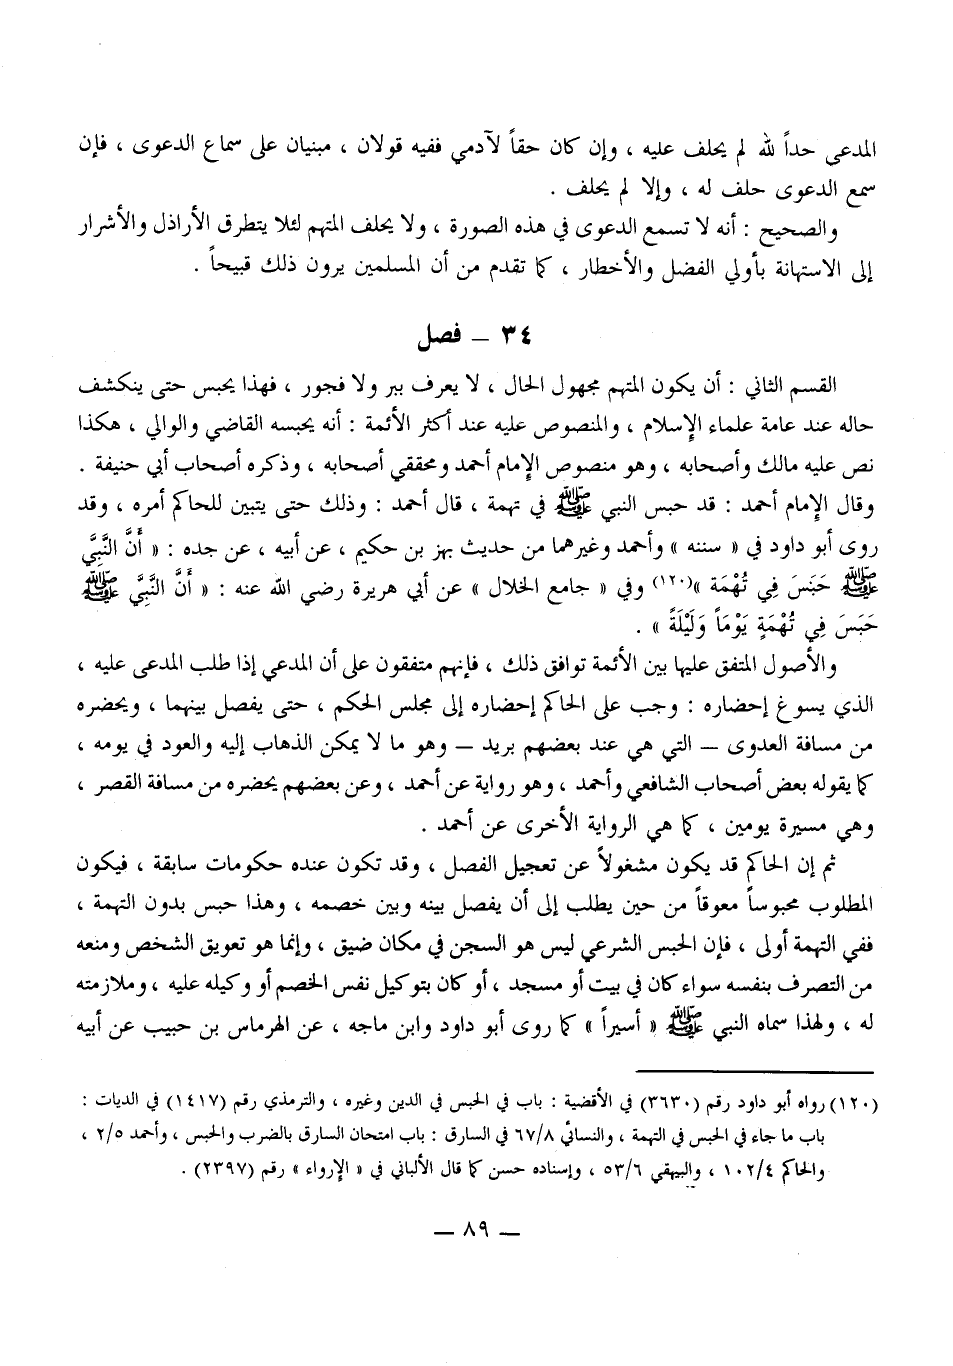 المدعى حداً لله لم يحلف عليه ، وإن كان حقاً لآدمي ففيه قولان ، مبنيان على سماع الدعوى ، فإن
سمع الدعوى حلف له ، وإلا لم يحلف .
والصحيح : أنه لا تسمع الدعوى في هذه الصورة ، ولا يحلف المتهم لئلا يتطرق الأراذل والأشرار
إلى الاستهانة بأولي الفضل والأخطار ، كما تقدم من أن المسلمين يرون ذلك قبيحاً .
٣٤ – فصل
القسم الثاني : أن يكون المتهم مجهول الحال ، لا يعرف ببر ولا فجور ، فهذا يحبس حتى ينكشف
حاله عند عامة علماء الإسلام ، والمنصوص عليه عند أكثر الأئمة : أنه يحبسه القاضي والوالي ، هكذا
نص عليه مالك وأصحابه ، وهو منصوص الإمام أحمد ومحققي أصحابه ، وذكره أصحاب أبي حنيفة .
وقال الإمام أحمد : قد حبس النبي ﷺ في تهمة ، قال أحمد : وذلك حتى يتبين للحاكم أمره ، وقد
روى أبو داود في « سننه » وأحمد وغيرهما من حديث بهز بن حكيم ، عن أبيه ، عن جده : « أَنَّ النَّبِيَّ
ﷺ حَبَسَ فِي تُهْمَة »(١٢٠) وفي « جامع الخلال » عن أبي هريرة رضي الله عنه : « أَنَّ النَّبِيَّ ﷺ
حَبَسَ فِي تُهْمَةٍ يَوْمَاً وَلَيْلَةً » .
والأصول المتفق عليها بين الأئمة توافق ذلك ، فإنهم متفقون على أن المدعي إذا طلب المدعى عليه ،
الذي يسوغ إحضاره : وجب على الحاكم إحضاره إلى مجلس الحكم ، حتى يفصل بينهما ، ويحضره
من مسافة العدوى – التي هي عند بعضهم بريد – وهو ما لا يمكن الذهاب إليه والعود في يومه ،
كما يقوله بعض أصحاب الشافعي وأحمد ، وهو رواية عن أحمد ، وعن بعضهم يحضره من مسافة القصر ،
وهي مسيرة يومين ، كما هي الرواية الأخرى عن أحمد .
ثم إن الحاكم قد يكون مشغولاً عن تعجيل الفصل ، وقد تكون عنده حكومات سابقة ، فيكون
المطلوب محبوساً معوقاً من حين يطلب إلى أن يفصل بينه وبين خصمه ، وهذا حبس بدون التهمة ،
ففي التهمة أولى ، فإن الحبس الشرعي ليس هو السجن في مكان ضيق ، وإنما هو تعويق الشخص ومنعه
من التصرف بنفسه سواء كان في بيت أو مسجد ، أو كان بتوكيل نفس الخصم أو وكيله عليه ، وملازمته
له ، ولهذا سماه النبي ﷺ « أسيراً » كما روى أبو داود وابن ماجه ، عن الهرماس بن حبيب عن أبيه
(١٢٠) رواه أبو داود رقم (٣٦٣٠) في الأقضية : باب في الحبس في الدين وغيره ، والترمذي رقم (١٤١٧) في الديات :
باب ما جاء في الحبس في التهمة ، والنسائي ٦٧/٨ في السارق : باب امتحان السارق بالضرب والحبس ، وأحمد ٢/٥ ،
والحاكم ١٠٢/٤ ، والبيهقي ٥٣/٦ ، وإسناده حسن كما قال الألباني في « الإرواء » رقم (٢٣٩٧) .
– ٨٩ –